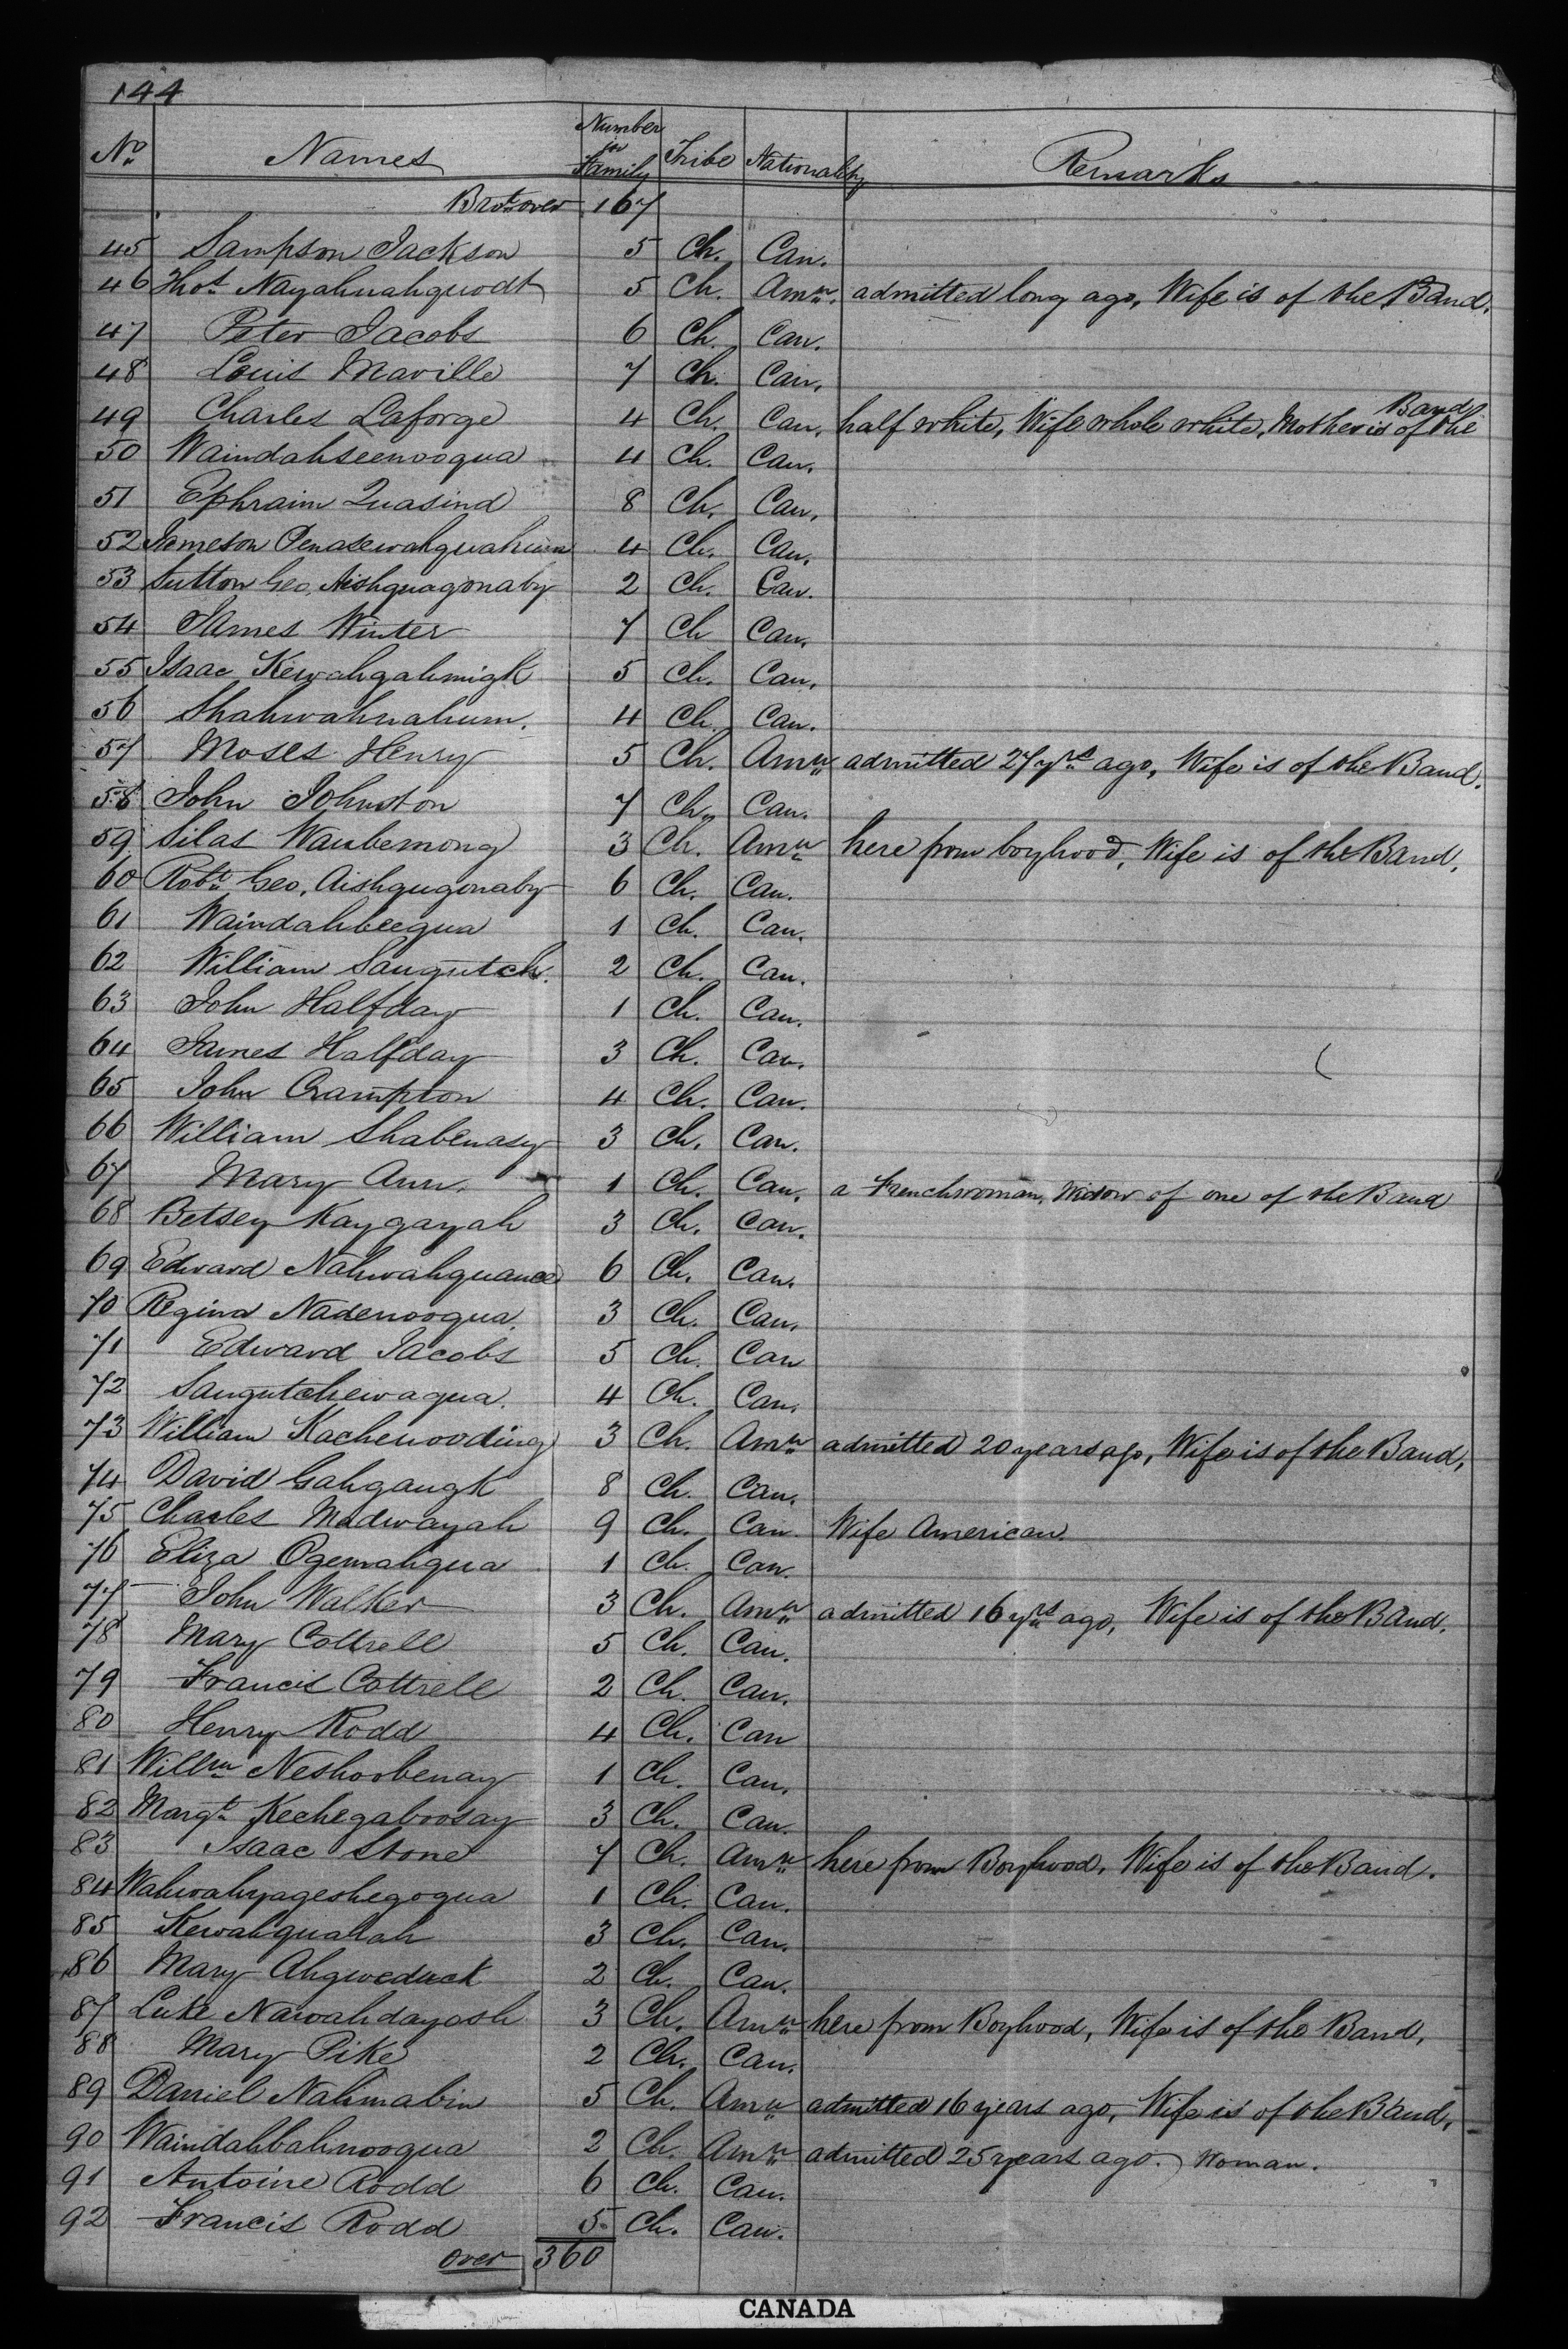 144
No Names Number in Family Tribe Nationality Remarks
Brot over 167
45 Sampson Jackson 5 Ch. Can.
46 Thos Nayahnahquodt 5 Ch. Amn. admitted long ago, Wife is of the Band.
47 Peter Jacobs 6 Ch. Can.
48 Louis Maville 7 Ch. Can.
49 Charles Laforge 4 Ch. Can. half white, Wife whole white, Mother is of the Band
50 Waindahseenooqua 4 Ch. Can.
51 Ephraim Quasind 8 Ch. Can.
52 Jameson Penasewahquahum 4 Ch. Can.
53 Sutton Geo, Aishquagonaby 2 Ch. Can.
54 James Winter 7 Ch Can.
55 Isaac Kewahgahmigk 5 Ch. Can.
56 Shahwahnahum. 4 Ch. Can.
57 Moses Henry 5 Ch. Amn admitted 27 yrs ago, Wife is of the Band.
58 John Johnston 7 Ch. Can.
59 Silas Waubemong 3 Ch. Amn here from boyhood, Wife is of the Band.
60 Robt Geo, Aishqugonaby 6 Ch. Can.
61 Waindahbeequa 1 Ch. Can.
62 William Saugutch. 2 Ch. Can.
63 John Halfday 1 Ch. Can.
64 James Halfday 3 Ch. Can.
65 John Crampton 4 Ch. Can.
66 William Shabenasy 3 Ch. Can.
67 Mary Ann. 1 Ch. Can. a Frenchwoman, Widow of one of the Band
68 Betsey Kaygayah 3 Ch. Can.
69 Edward Nahwahquance 6 Ch. Can.
70 Regina Nadenooqua. 3 Ch. Can.
71 Edward Jacobs 5 Ch. Can
72 Saugutchewaqua. 4 Ch. Can.
73 William Kachenooding 3 Ch. Amn admitted 20 years ago, Wife is of the Band,
74 David Gahgaugk 8 Ch. Can.
75 Charles Madwayah 9 Ch. Can Wife American.
76 Eliza Ogemahqua 1 Ch. Can.
77 John Walker 3 Ch. Amn admitted 16 yrs ago, Wife is of the Band.
78 Mary Cottrell 5 Ch. Can.
79 Francis Cottrell 2 Ch. Can.
80 Henry Rodd 4 Ch. Can
81 Willm Neshoobenay 1 Ch. Can.
82 Margt Kechegaboosay 3 Ch. Can.
83 Isaac Stone 7 Ch. Amn here from Boyhood, Wife is of the Band.
84 Wahwahyageshegoqua 1 Ch. Can.
85 Kewahquahah 3 Ch. Can.
86 Mary Ahgweduck 2 Ch. Can.
87 Luke Nawahdayosh 3 Ch. Amn here from Boyhood, Wife is of the Band,
88 Mary Pike 2 Ch. Can.
89 Daniel Nahmabin 5 Ch. Amn admitted 16 years ago, Wife is of the Band,
90 Waindahbahnooqua 2 Ch. Amn admitted 25 years ago. Woman.
91 Antoine Rodd 6 Ch. Can.
92 Francis Rodd 5 Ch. Can.
over 360
CANADA